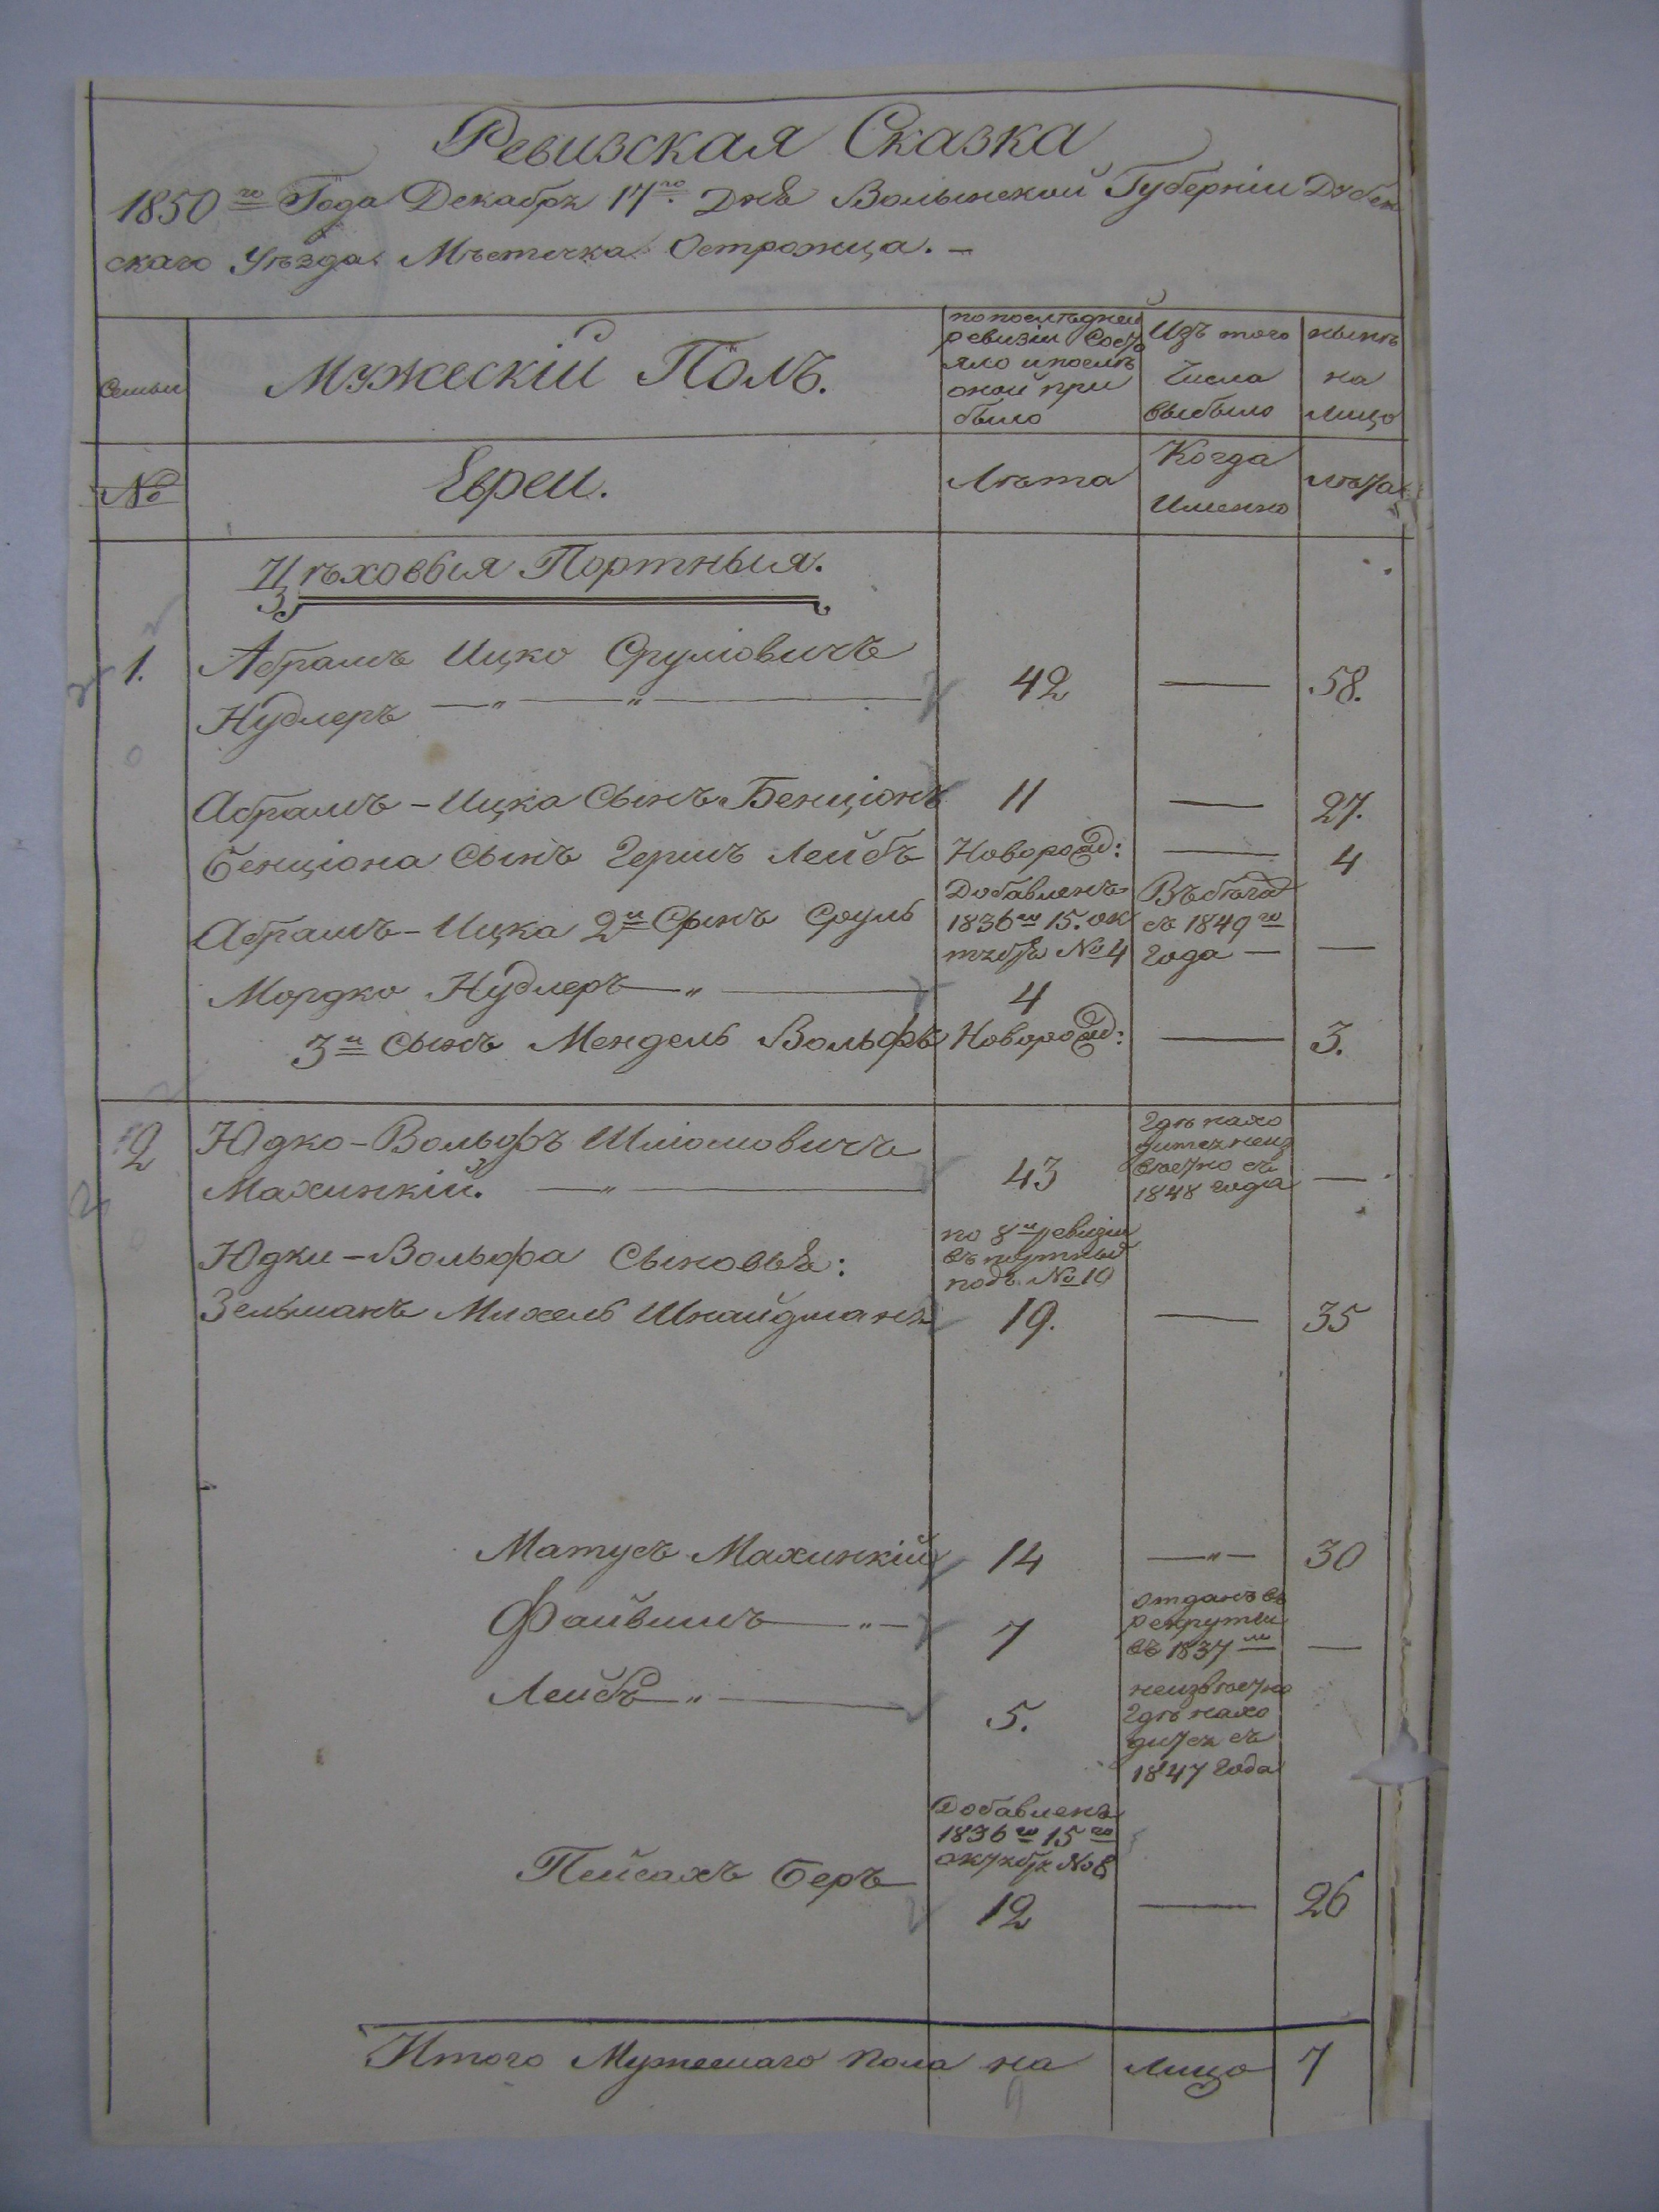 Ревизская Сказка
1850го Года Декабря 17го Дня Волынской Губерніи Дубен
скаго Уѣзда Мѣстечка Острожца. —
Семьи
Мужескій Полъ.
по послѣдней
ревизіи Состо
яло и послѣ
оной при
было
Изъ того
Числа
выбыло
нынѣ
на
лицо
№
Евреи.
Лѣта
Когда
Именно
лѣта
Цѣховыя Портныя.
1. Абрамъ Ицко Срулювичъ
Нудлеръ — „ — „ — 42 — 58.
Абрамъ-Ицка Сынъ Бенціонъ 11 — 27.
Бенціона Сынъ Гершъ Лейбъ Новорожд: — 4
Абрамъ-Ицка 2й Сынъ Сруль
Добавленъ
1836го 15. ок
тября № 4
Въ бѣгах
съ 1849го
года — —
Мордко Нудлеръ — „ — 4
3й Сынъ Мендель Вольфъ Новорожд: — 3.
2 Юдко-Вольфъ Шліомовичъ
Махинкій. — „ — 43
Гдѣ нахо
дится неиз
вѣстно съ
1848 года —
Юдки-Вольфа Сыновья:
по 8й ревизіи
под № 10
Зельманъ Михель Шнайдманъ 19. — 35
Матусъ Махинкій 14 — „ — 30
Файвишъ — „ — 7
отданъ въ
рекруты
въ 1837м —
Лейбъ — „ — 5.
неизвѣстно
гдѣ нахо
дится съ
1847 года
Пейсахъ Беръ
Добавленъ
1836го 15го
октября № 8
12 — 26
Итого Мужескаго пола на Лицо 7
9